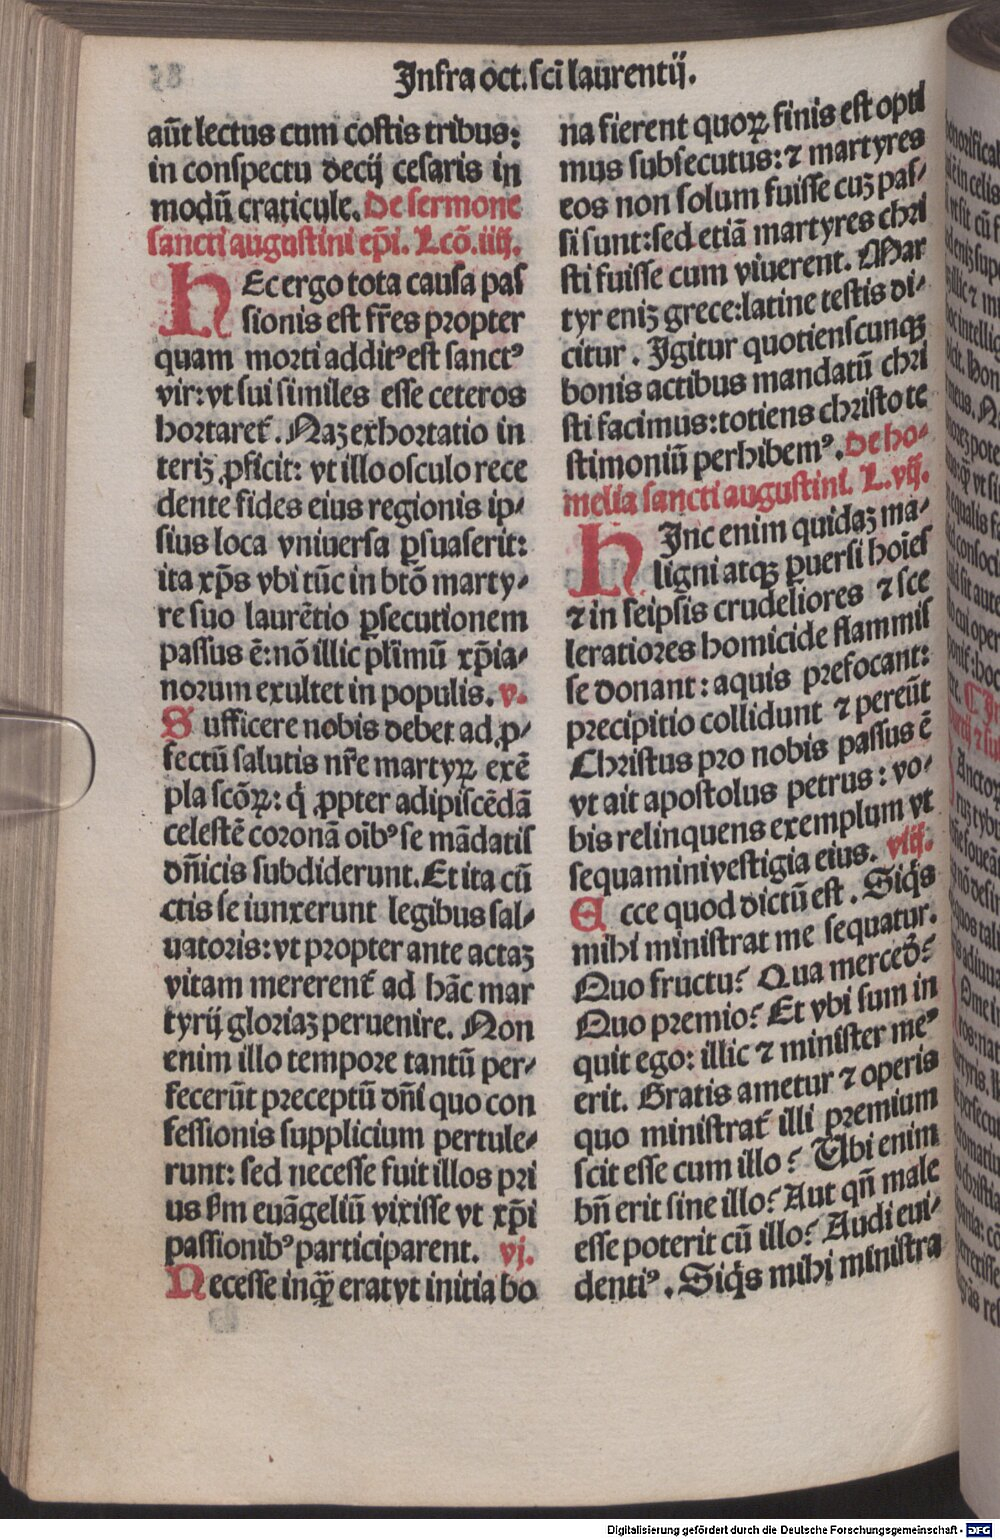 Infra oct. sci laurentij.
aūt lectus cum costis tribus:
in conspectu decij cesaris in
modū craticule. De sermone
sancti augustini ep̄i. Lcō. iiij.
HEc ergo tota causa pas
sionis est fr̄es propter
quam morti additꝰ est sanctꝰ
vir: vt sui similes esse ceteros
hortaret᷑. Naꝫ exhortatio in
teriꝫ ꝓficit: vt illo osculo rece
dente fides eius regionis ip-
sius loca vniuersa ꝑsuaserit:
ita xp̄s vbi tūc in btō marty-
re suo laurētio ꝑsecutionem
passus ē: nō illic pl̄imū xp̄ia-
norum exultet in populis. v.
Sufficere nobis debet ad ꝓ-
fectū salutis nr̄e martyꝝ exē
pla scōꝝ: q̄ ꝓpter adipiscēdā
celestē coronā oībꝰ se mādatis
dn̄icis subdiderunt. Et ita cū
ctis se iunxerunt legibus sal-
uatoris: vt propter ante actaꝫ
vitam mererent᷑ ad hāc mar
tyrij gloriaꝫ peruenire. Non
enim illo tempore tantū per-
fecerūt preceptū dn̄i quo con
fessionis supplicium pertule-
runt: sed necesse fuit illos pri
us ẜm euāgeliū vixisse vt xp̄i
passionibꝰ participarent. vj.
Necesse inqͣꝫ erat vt initia bo
na fierent quoꝝ finis est opti
mus subsecutus: ⁊ martyres
eos non solum fuisse cuꝫ pas-
si sunt: sed etiā martyres chri
sti fuisse cum viuerent. Mar
tyr eniꝫ grece: latine testis di-
citur. Igitur quotienscunqꝫ
bonis actibus mandatū chri
sti facimus: totiens christo te
stimoniū perhibemꝰ. De ho-
melia sancti augustini. L. vij.
HInc enim quidaꝫ ma-
ligni atqꝫ ꝑuersi hoīes
⁊ in seipsis crudeliores ⁊ sce
leratiores homicide flammis
se donant: aquis prefocant:
precipitio collidunt ⁊ pereūt
Christus pro nobis passus ē
vt ait apostolus petrus: vo-
bis relinquens exemplum vt
sequamini vestigia eius. viij.
Ecce quod dictū est. Siq̄s
mihi ministrat me sequatur.
Quo fructu? Qua merced̄?
Quo premio? Et vbi sum in
quit ego: illic ⁊ minister meꝰ
erit. Gratis ametur ⁊ operis
quo ministrat᷑ illi premium
scit esse cum illo? Ubi enim
bn̄ erit sine illo? Aut qn̄ male
esse poterit cū illo? Audi eui-
dentiꝰ. Siq̄s mihi ministra
Digitalisierung gefördert durch die Deutsche Forschungsgemeinschaft - DFG